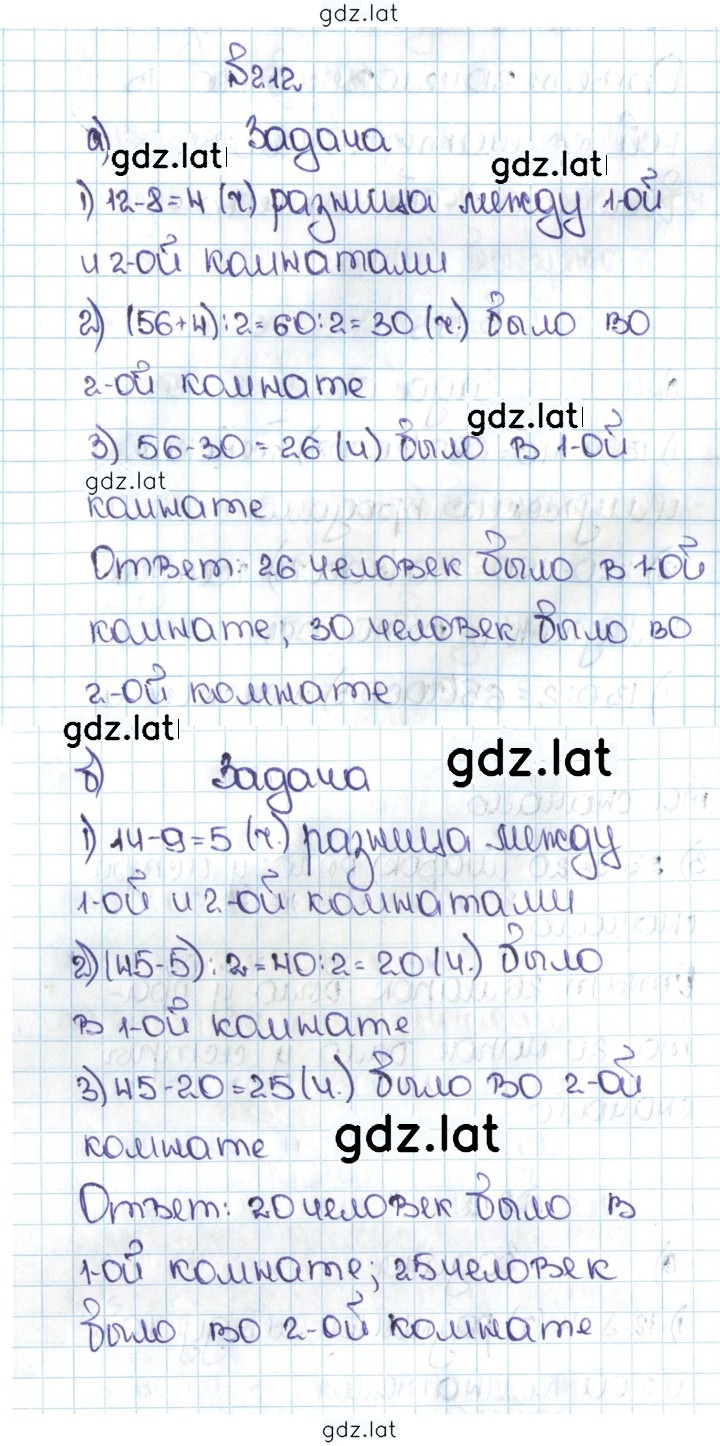 gdz.lat
№212
а) Задача
gdz.lat
gdz.lat
1) 12-8=4 (ч) разница между 1-ой
и 2-ой комнатами
2) (56+4):2=60:2=30 (ч.) было во
2-ой комнате
gdz.lat
3) 56-30=26 (ч) было в 1-ой
gdz.lat
комнате
Ответ: 26 человек было в 1-ой
комнате; 30 человек было во
2-ой комнате
gdz.lat
gdz.lat
б) Задача
1) 14-9=5 (ч.) разница между
1-ой и 2-ой комнатами
2) (45-5):2=40:2=20 (ч.) было
в 1-ой комнате
3) 45-20=25 (ч.) было во 2-ой
комнате
gdz.lat
Ответ: 20 человек было в
1-ой комнате; 25 человек
было во 2-ой комнате
gdz.lat